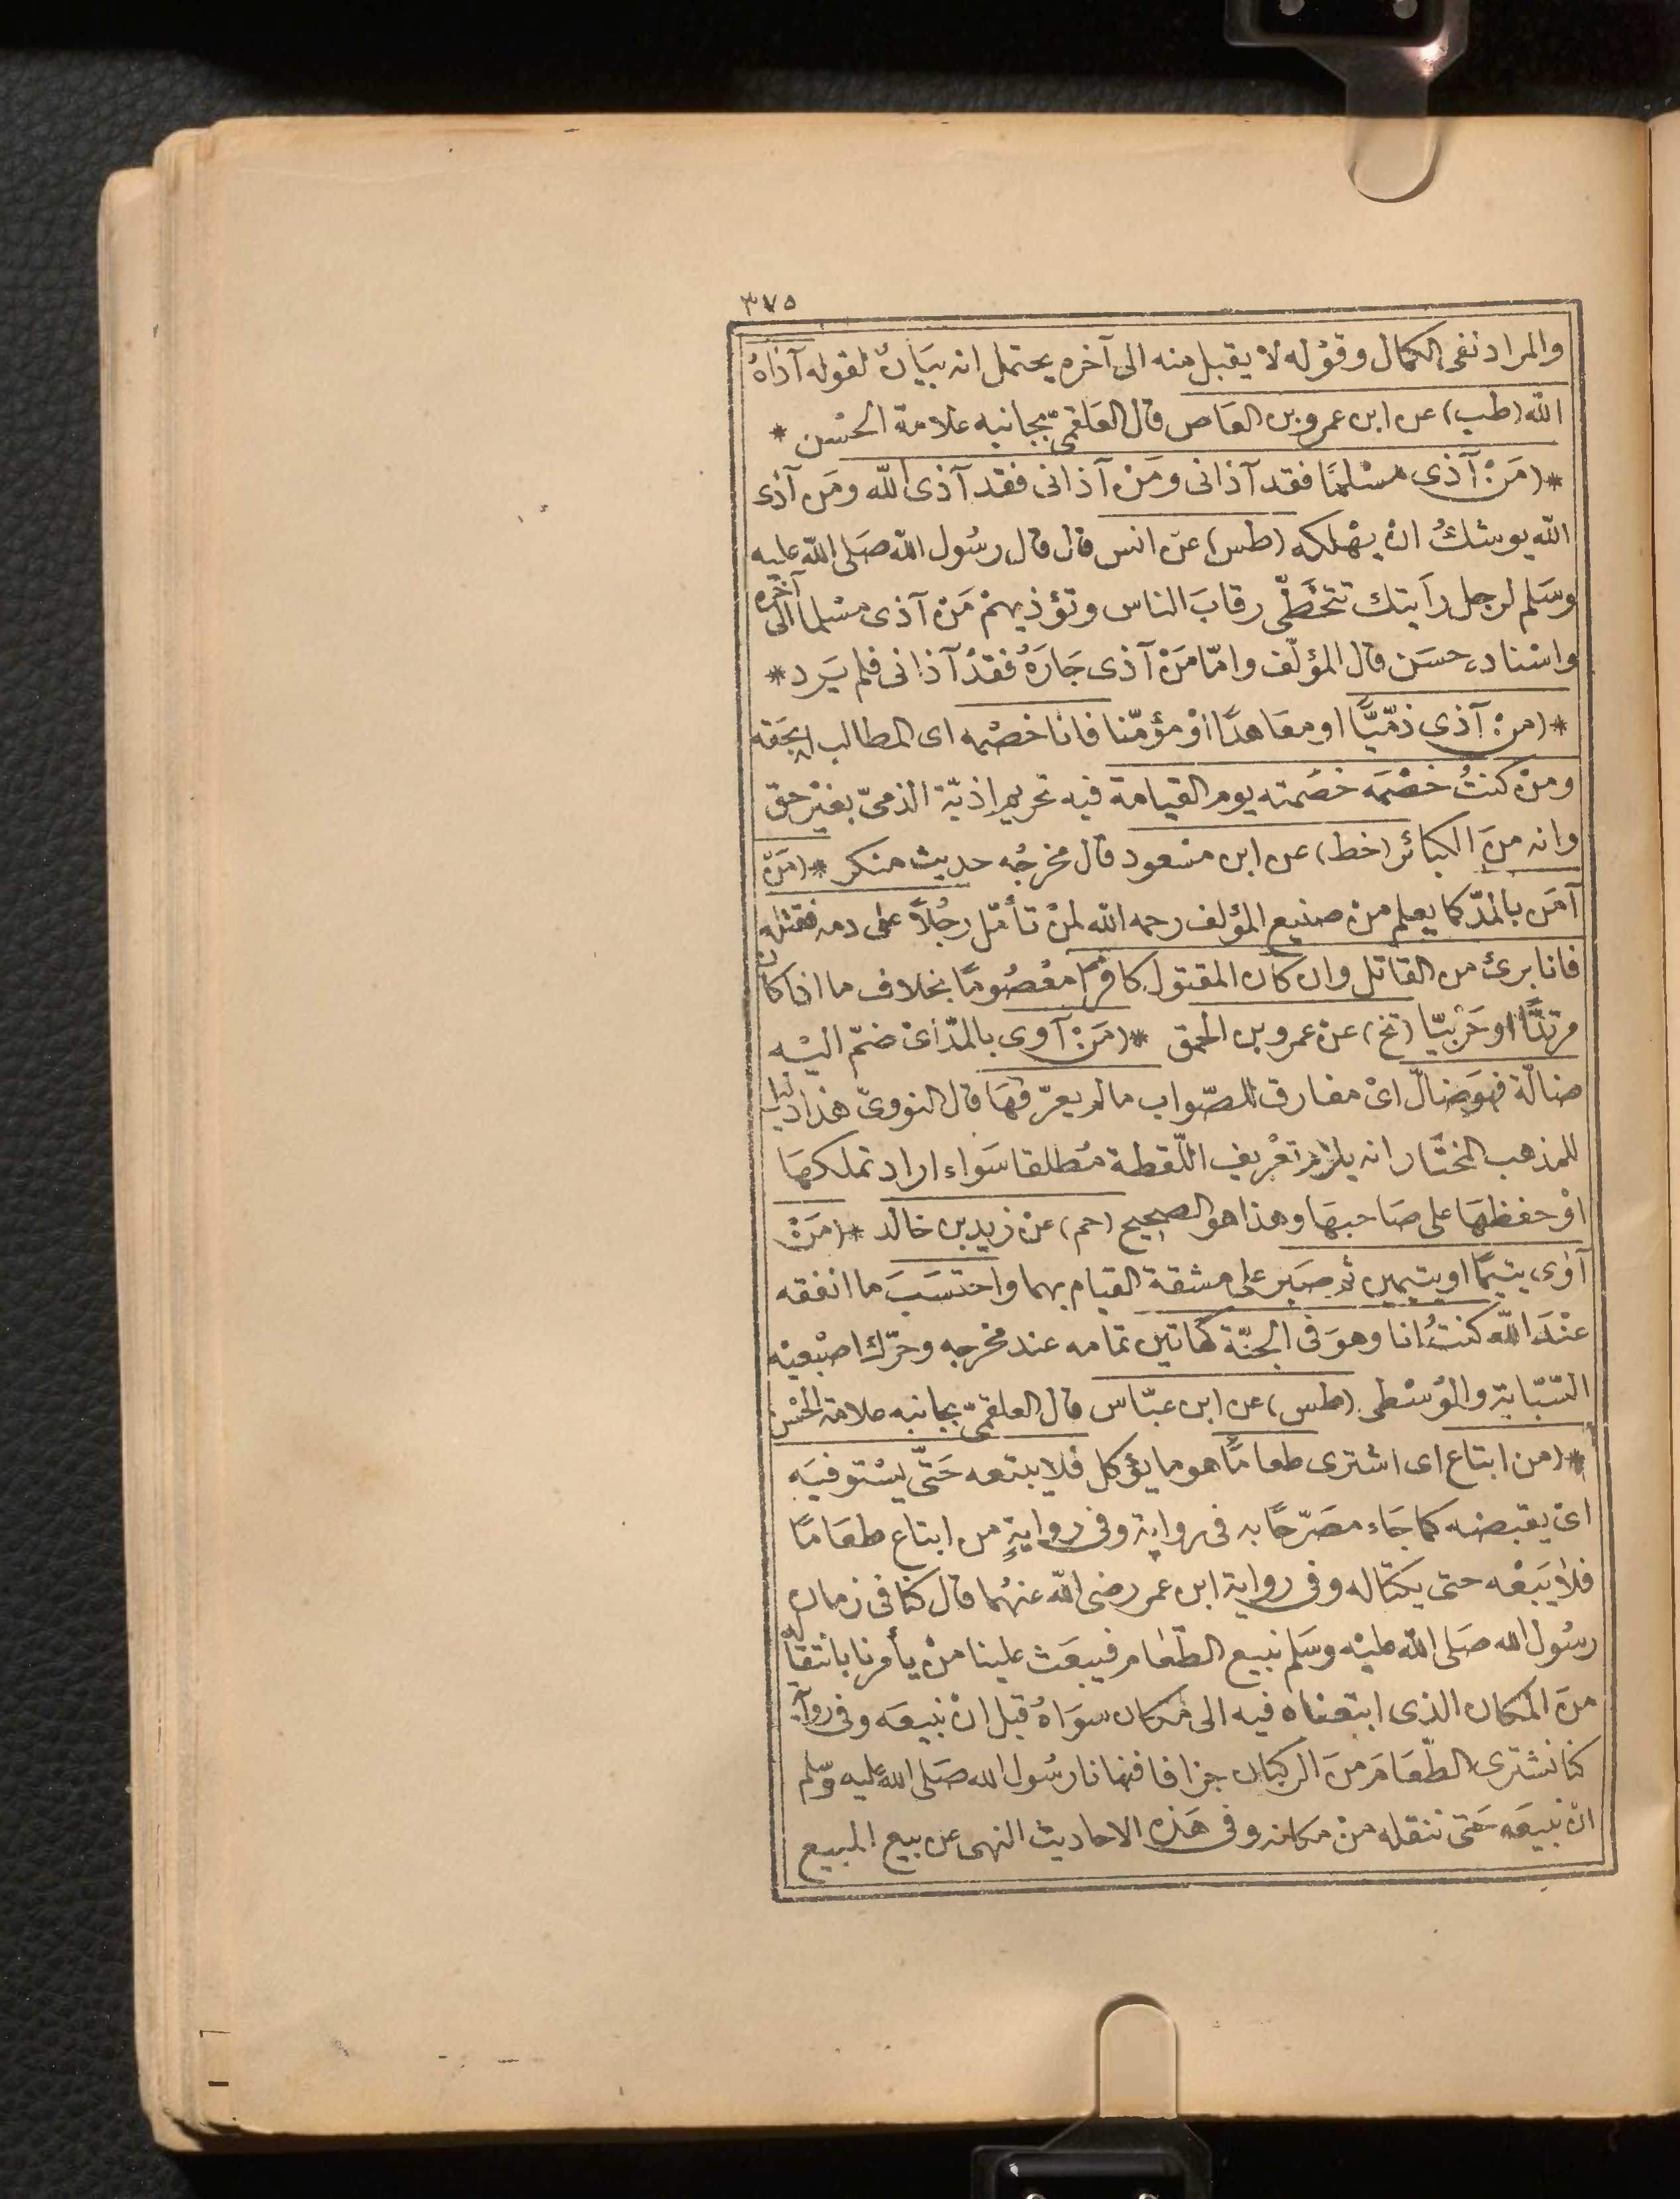 ٣٧٥
والمراد نفى الكمال وقوْله لا يقبل منه الى آخره يحتمل انه بيَانٌ لقوله آذاهُ
الله (طب) عن ابن عمرو بن العَاص قال العَلقمىّ بجانبه علامة الحسْن *
*(مَنْ آذى مسْلمًا فقد آذانى ومَنْ آذانى فقد آذى الله ومَن آذى
الله يوشكُ انْ يهْلكه (طس) عن انس قال قال رسُول الله صَلى الله عليه
وسَلم لرجل رأيتك تتخَطّى رقابَ الناس وتؤذيهمْ مَنْ آذى مسْلما الى آخره
واسْناده حسَن قال المؤلّف وامّا مَنْ آذى جَارَهُ فقدْ آذانى فلم يَرد *
*(منْ آذى ذمّيًّا او معَاهدًا اوْ مؤمّنا فانا خصْمه اى المطالب بحَقه
ومنْ كنتُ خصْمَه خصَمته يوم القيامة فيه تحريم اذيّة الذمىّ بغيْر حق
وانه منَ الكبائر (خط) عن ابن مسْعود قال مخرجُه حديث منكر *(مَنْ
آمَن بالمدّ كما يعلم منْ صنيع المؤلف رحمه الله لمنْ تأمّل رجُلاً على دمه فقتله
فانا برئ من القاتل وان كان المقتول كافرًا معْصُومًا بخلاف ما اذا كان
مرتدًّا او حَرْبيّا (تخ) عنْ عمرو بن الحمق *(مَنْ آوى بالمدّ اىْ ضمّ اليْه
ضالّة فهَو ضالّ اىْ مفارق للصّواب مالم يعرّفهَا قال النووىّ هذا دليل
للمذهب المختَار انه يلزم تعْريف اللّقطة مُطلقا سَواء اراد تملكهَا
اوْ حفظهَا على صَاحبهَا وهذا هو الصحيح (حم) عنْ زيد بن خالد *(مَنْ
آوى يتيمًا او يتيمين ثم صبَر على مشقة القيام بهما واحتسَبَ ما انفقه
عنْدَ الله كنتُ انا وهوَ فى الجنّة كهاتين تمامه عند مخرجه وحرّك اصبْعيْه
السّبّابة والوُسْطى (طس) عن ابن عبّاس قال العلقمىّ بجانبه علامة الحسْن
*(من ابتاع اى اشترى طعامًا هو ما يؤكل فلا يبتعه حَتّى يسْتوفيَه
اىْ يقبضه كما جَاء مصَرّحًا به فى رواية وفى روايةٍ من ابتاع طعَامًا
فلا يَبَعْه حتى يكتاله وفى رواية ابن عمر رضى الله عنهُما قال كنا فى زمان
رسُول الله صَلى الله عليْه وسَلم نبيع الطّعَام فيبعَث علينا منْ يأمرنا بانتقاله
منَ المكان الذى ابتعناه فيه الى مَكان سوَاهُ قبل انْ نبيعَه وفى رواية
كنا نشترى الطّعَامَ منَ الركبان جزافا فنهانا رسُول الله صَلى الله عليه وسّلم
انْ نبيعَه حَتى ننقله منْ مكانه وفى هَذه الاحاديث النهى عن بيع المبيع